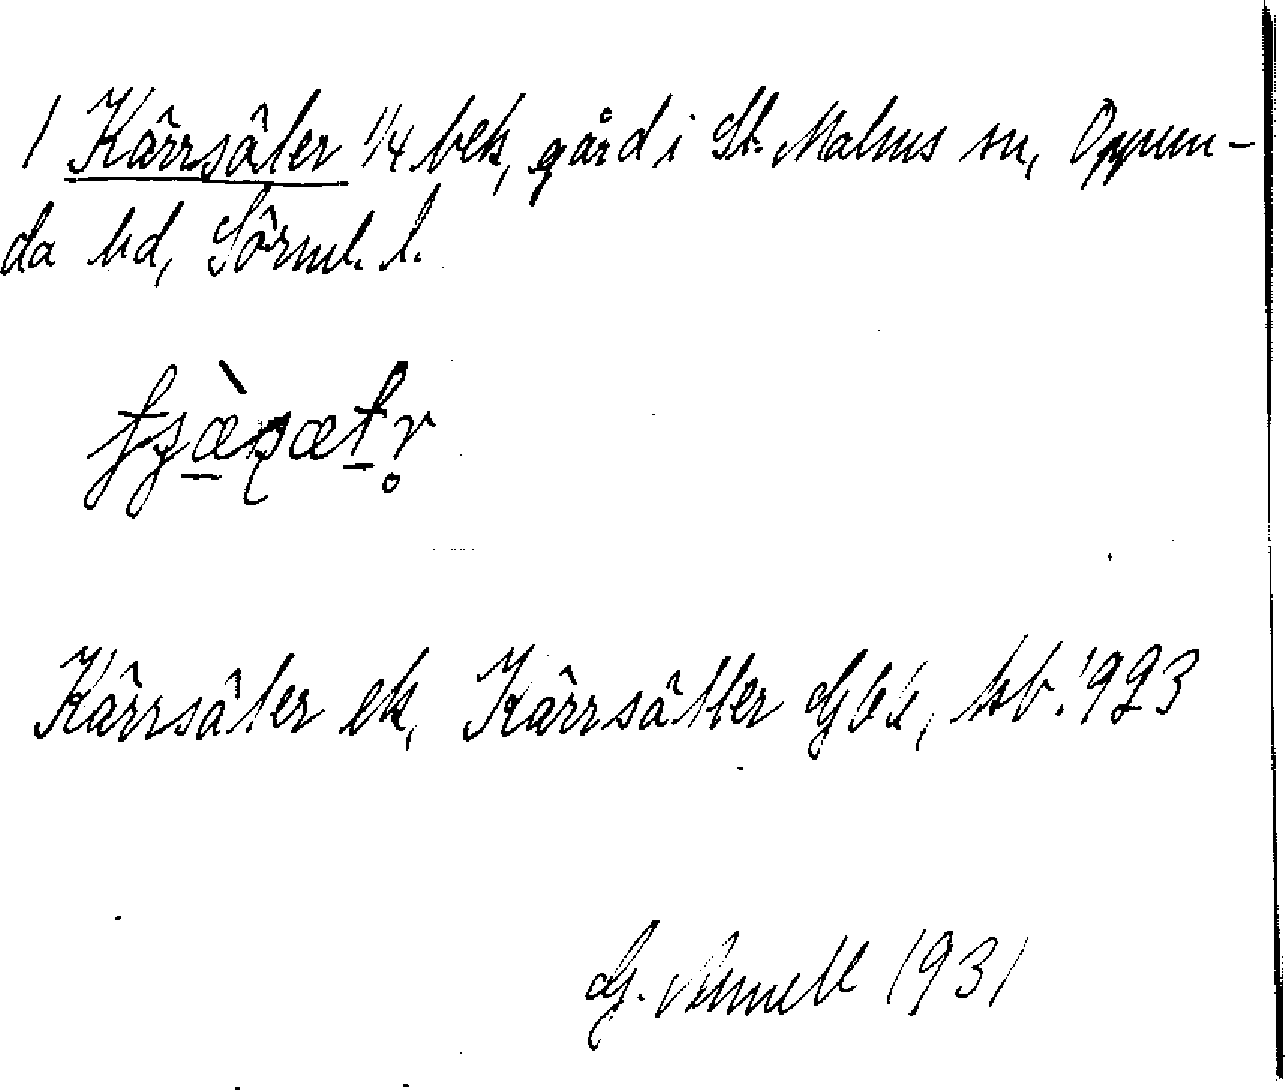 1 Kärrsäter 1/4 bek, gård i St. Malms sn, Oppun-
da hd, Sörml. l.
Kärrsäter ek, Kärrsätter Gbk, hb. 1923
G. Annell 1931